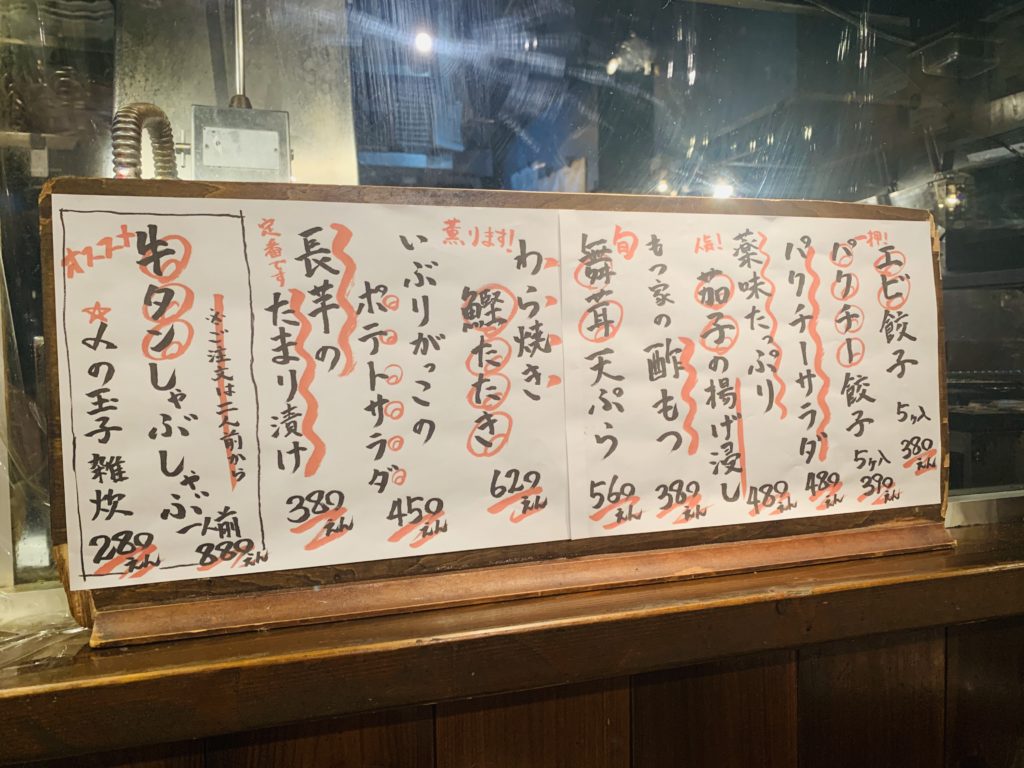 一押!
エビ餃子 5ヶ入 380えん
パクチー餃子 5ヶ入 390えん
パクチーサラダ 480えん
薬味たっぷり
人気!
茄子の揚げ浸し 480えん
もつ家の酢もつ 380えん
旬
舞茸天ぷら 560えん
わら焼き
鰹たたき 620えん
薫ります!
いぶりがっこの
ポテトサラダ 450えん
長芋の
たまり漬け 380えん
定番です
※ご注文は二人前から
牛タンしゃぶしゃぶ 一人前 880えん
オススメ
☆〆の玉子雑炊 280えん